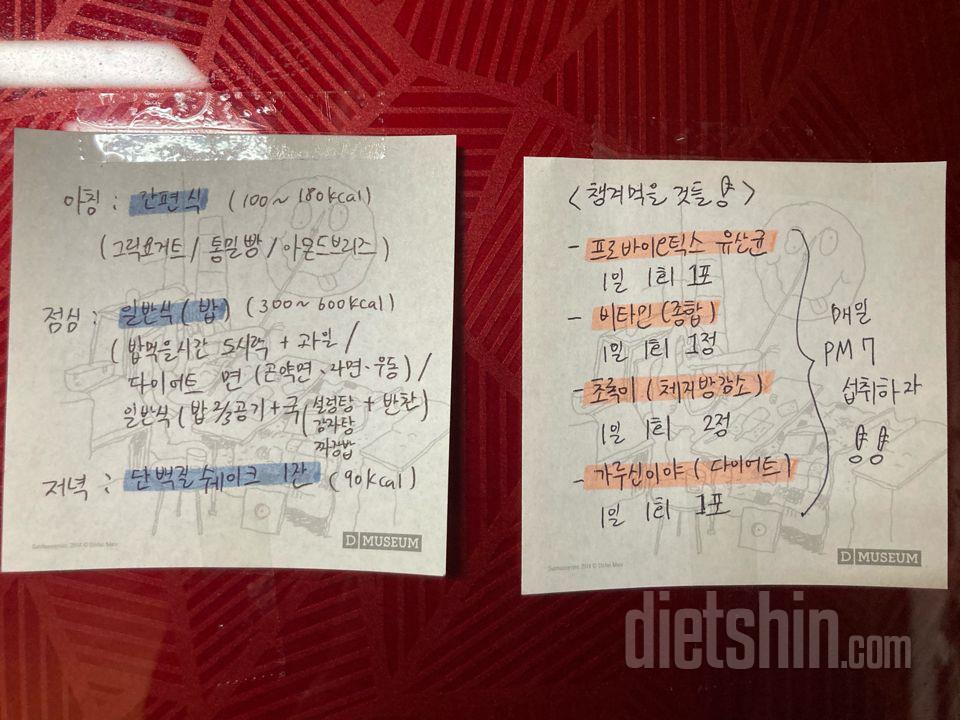 아침 : 간편식 (100~180kcal)
(그릭요거트 / 통밀빵 / 아몬드브리즈)
점심 : 일반식(밥) (300~600kcal)
(밥먹을시간 도시락 + 과일 /
다이어트 면 (곤약면·라면·우동) /
일반식(밥 2/3공기 + 국(설렁탕 + 반찬)
감자탕
짜장밥
저녁 : 단백질 쉐이크 1잔 (90kcal)
D MUSEUM
<챙겨먹을 것들>
- 프로바이오틱스 유산균
1일 1회 1포
- 비타민 (종합)
1일 1회 1정
- 초록이 (체지방감소)
1일 1회 2정
- 가루신이야 (다이어트)
1일 1회 1포
매일
PM 7
섭취하자
D MUSEUM
dietshin.com